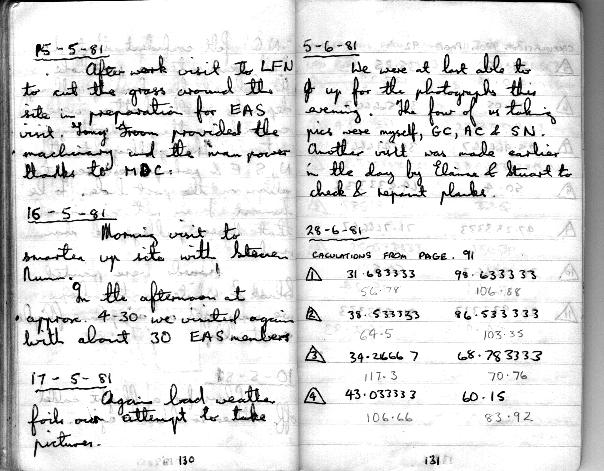 15-5-81
After work visit to LFN
to cut the grass around the
site in preparation for EAS
visit. Tony Froom provided the
machinery and the man power
thanks to MDC.
16-5-81
Morning visit to
smarten up site with Steven
Nunn.
In the afternoon at
approx. 4-30 we visited again
with about 30 EAS members
17-5-81
Again bad weather
foils our attempt to take
pictures.
130
5-6-81
We were at last able to
up for the photographs this
evening. The four of us taking
pics were myself, GC, AC & SN.
Another visit was made earlier
in the day by Elaine & Stuart to
check & repaint planks.
28-6-81
CACULATIONS FROM PAGE. 91
1 31.683333 98.633333
56.78 106.88
2 38.533333 86.533333
64.5 103.35
3 34.26667 68.783333
117.3 70.76
4 43.033333 60.15
106.66 83.92
131